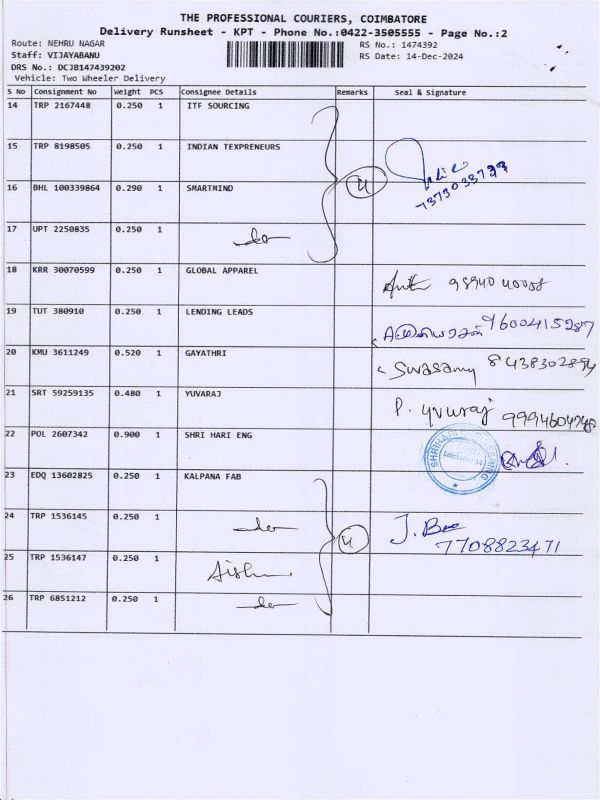 THE PROFESSIONAL COURIERS, COIMBATORE
Delivery Runsheet - KPT - Phone No.:0422-3505555 - Page No.:2
Route: NEHRU NAGAR RS No.: 1474392
Staff: VIJAYABANU RS Date: 14-Dec-2024
DRS No.: DCJB147439202
Vehicle: Two Wheeler Delivery
S No Consignment No Weight PCS Consignee Details Remarks Seal & Signature
14 TRP 2167448 0.250 1 ITF SOURCING
15 TRP 8198505 0.250 1 INDIAN TEXPRENEURS
16 BHL 100339864 0.290 1 SMARTMIND
7373033793
17 UPT 2250835 0.250 1 do
18 KRR 30070599 0.250 1 GLOBAL APPAREL
98940 40058
19 TUT 380910 0.250 1 LENDING LEADS
9600415287
20 KMU 3611249 0.520 1 GAYATHRI
Suvasamy 8438302894
21 SRT 59259135 0.480 1 YUVARAJ
P. yvuraj
22 POL 2607342 0.900 1 SHRI HARI ENG
23 EDQ 13602825 0.250 1 KALPANA FAB
24 TRP 1536145 0.250 1 do
7708823471
25 TRP 1536147 0.250 1
26 TRP 6851212 0.250 1 do